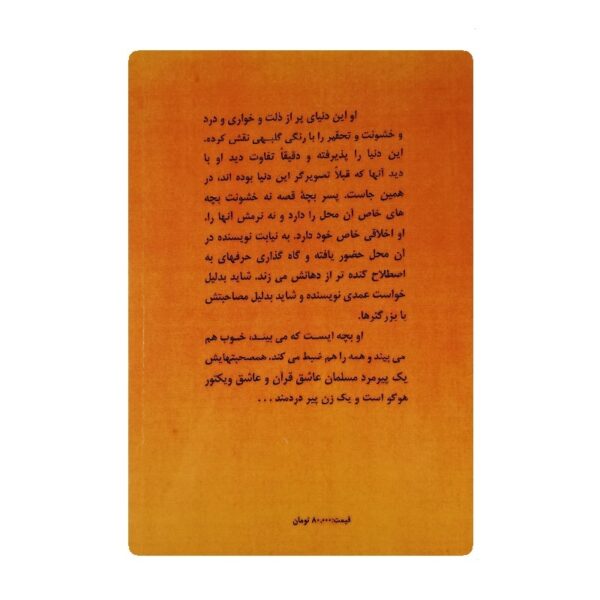 او این دنیای پر از ذلت و خواری و درد
و خشونت و تحقیر را با رنگی گلبهی نقش کرده.
این دنیا را پذیرفته و دقیقاً تفاوت دید او با
دید آنها که قبلاً تصویرگر این دنیا بوده اند، در
همین جاست. پسر بچهٔ قصه نه خشونت بچه
های خاص آن محل را دارد و نه نرمش آنها را،
او اخلاقی خاص خود دارد. به نیابت نویسنده در
آن محل حضور یافته و گاه گذاری حرفهای به
اصطلاح گنده تر از دهانش می زند. شاید بدلیل
خواست عمدی نویسنده و شاید بدلیل مصاحبتش
با بزرگترها.
او بچه ایست که می بیند، خوب هم
می بیند و همه را هم ضبط می کند. همصحبتهایش
یک پیرمرد مسلمان عاشق قرآن و عاشق ویکتور
هوگو است و یک زن پیر دردمند . . .
قیمت: ۸۰،۰۰۰ تومان